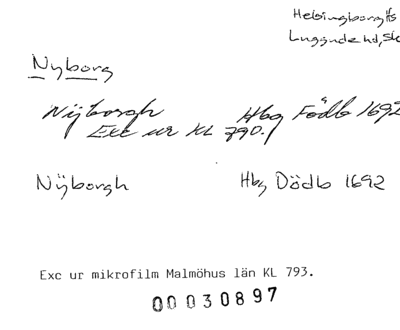 Helsingborg Hfs
Luggude hd, Sk
Nyborg
Nÿborgh Hbg Födb 1692
Exc ur KL 790.
Nÿborgh Hbg Dödb 1692
Exc ur mikrofilm Malmöhus län KL 793.
00030897